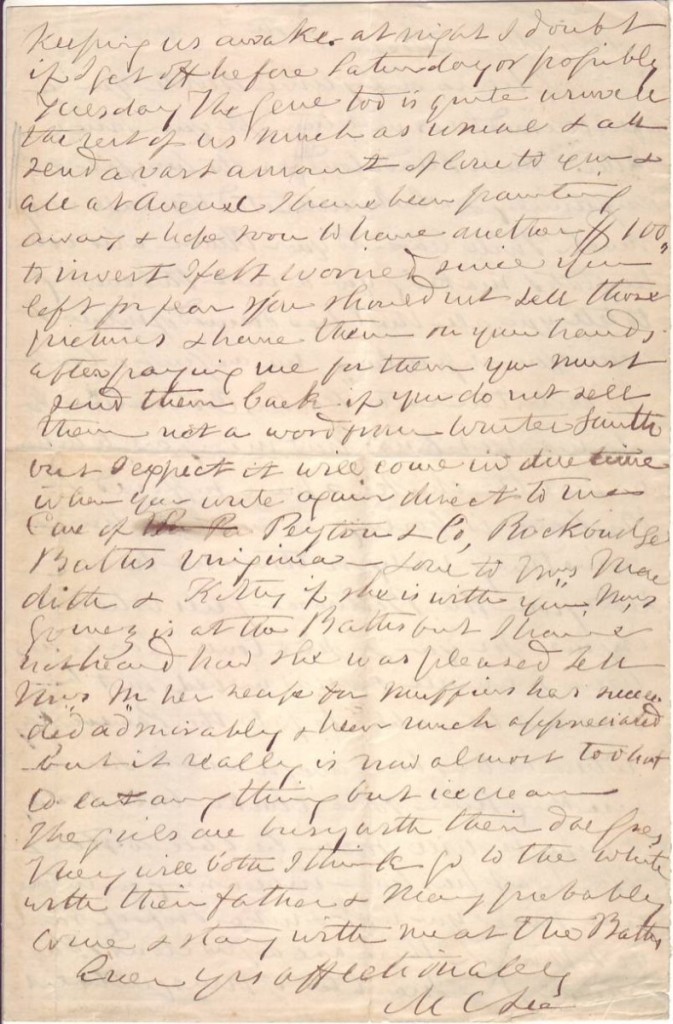 keeping us awake at night I doubt
if I get off before Saturday or possibly
Tuesday The Genl too is quite unwell
the rest of us much as usual & all
send a vast amount of love to you &
all at I have been painting
away & hope soon to have another $100
to invest I felt worried since you
left for fear you should not sell those
pictures & have them on your hands
after paying me for them you must
send them back if you do not sell
them not a word from Smith
but I expect it will come in due time
when you write again direct to me
Care of Peyton & Co, Rockbridge
Baths Virginia - Love to Mrs Mere
dith & Kitty if she is with you, Mrs
Gomez is at the Baths but I have
not heard how she was pleased tell
Mrs M her receipt for muffins has succee
ded admirably & been much appreciated
but it really is now almost too hot
to eat any thing but icecream
The girls are busy with their dresses,
They will both I think go to the White
with their father & Mary probably
come & stay with me at the Baths
Ever yrs affectionately
M C Lee